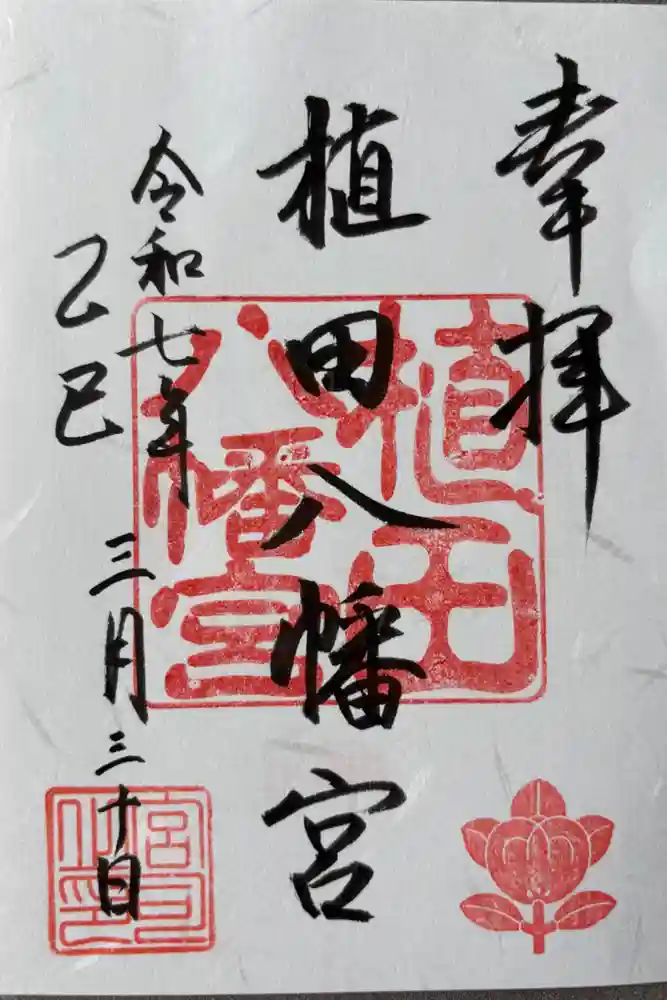 奉拝
植田八幡宮
令和七年
乙巳
三月三十日
植田
八幡宮
宮司
之印